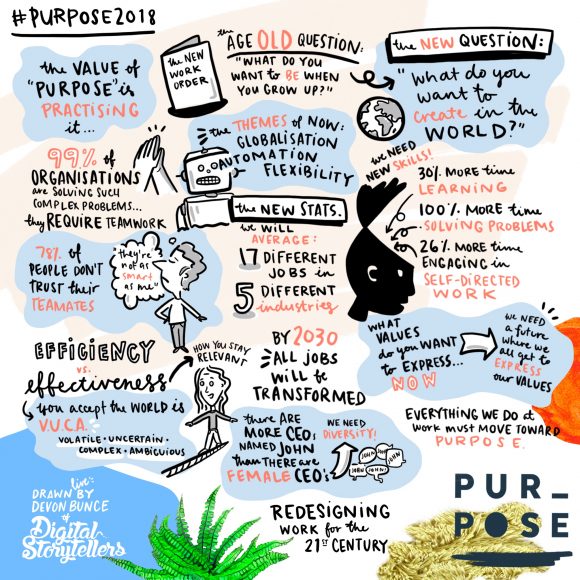 #PURPOSE2018
the VALUE of
"PURPOSE" is
PRACTISING
it...
the NEW
WORK
ORDER
the
AGE OLD QUESTION:
"WHAT DO YOU
WANT to BE WHEN
YOU GROW UP?"
the NEW QUESTION:
"What do you
want to
create in the
WORLD?"
99% of
ORGANISATIONS
are SOLVING SUCH
COMPLEX PROBLEMS...
they REQUIRE TEAMWORK
the THEMES of NOW:
GLOBALISATION
AUTOMATION
FLEXIBILITY
we NEED
NEW SKILLS!
30% MORE time
LEARNING
100% MORE time
SOLVING PROBLEMS
26% MORE time
ENGAGING in
SELF-DIRECTED
WORK
the NEW STATS.
we WILL
AVERAGE:
17 DIFFERENT
JOBS in
5 DIFFERENT
industries
78% of
PEOPLE DON'T
TRUST their
TEAMATES
"they're
not as
smart
as me"
EFFICIENCY
vs.
effectiveness
HOW YOU STAY
RELEVANT
you accept the WORLD is
V.U.C.A.
VOLATILE · UNCERTAIN ·
COMPLEX · AMBIGUOUS
BY 2030
ALL JOBS
WILL be
TRANSFORMED
WHAT
VALUES
do you WANT
to EXPRESS...
NOW
we NEED
a future
where we
all get to
EXPRESS
our VALUES
there ARE
MORE CEO's
NAMED JOHN
than THERE are
FEMALE CEO's
WE NEED
DIVERSITY!
JOHN
JOHN
JOHN
JOHN!
EVERYTHING WE DO at
WORK must MOVE TOWARD
PURPOSE.
REDESIGNING
WORK for the
21ST CENTURY
live:
DRAWN BY
DEVON BUNCE
of
Digital
Storytellers
PUR_
POSE